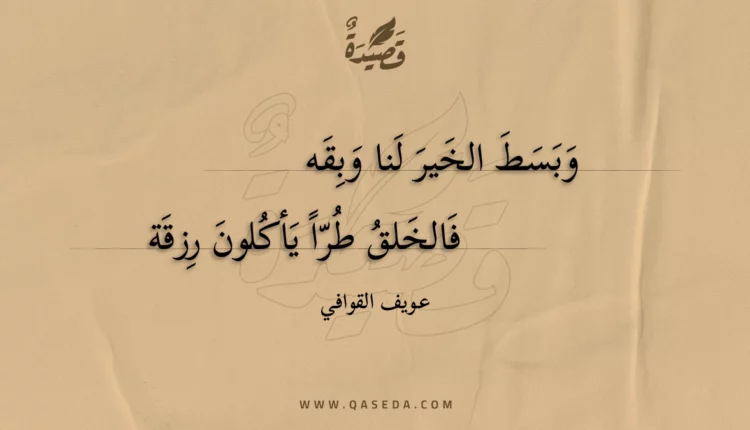 قَصِيْدَةٌ
وَبَسَطَ الخَيرَ لَنا وَبِقَه
فَالخَلقُ طُرّاً يَأكُلونَ رِزقَة
عويف القوافي
WWW.QASEDA.COM